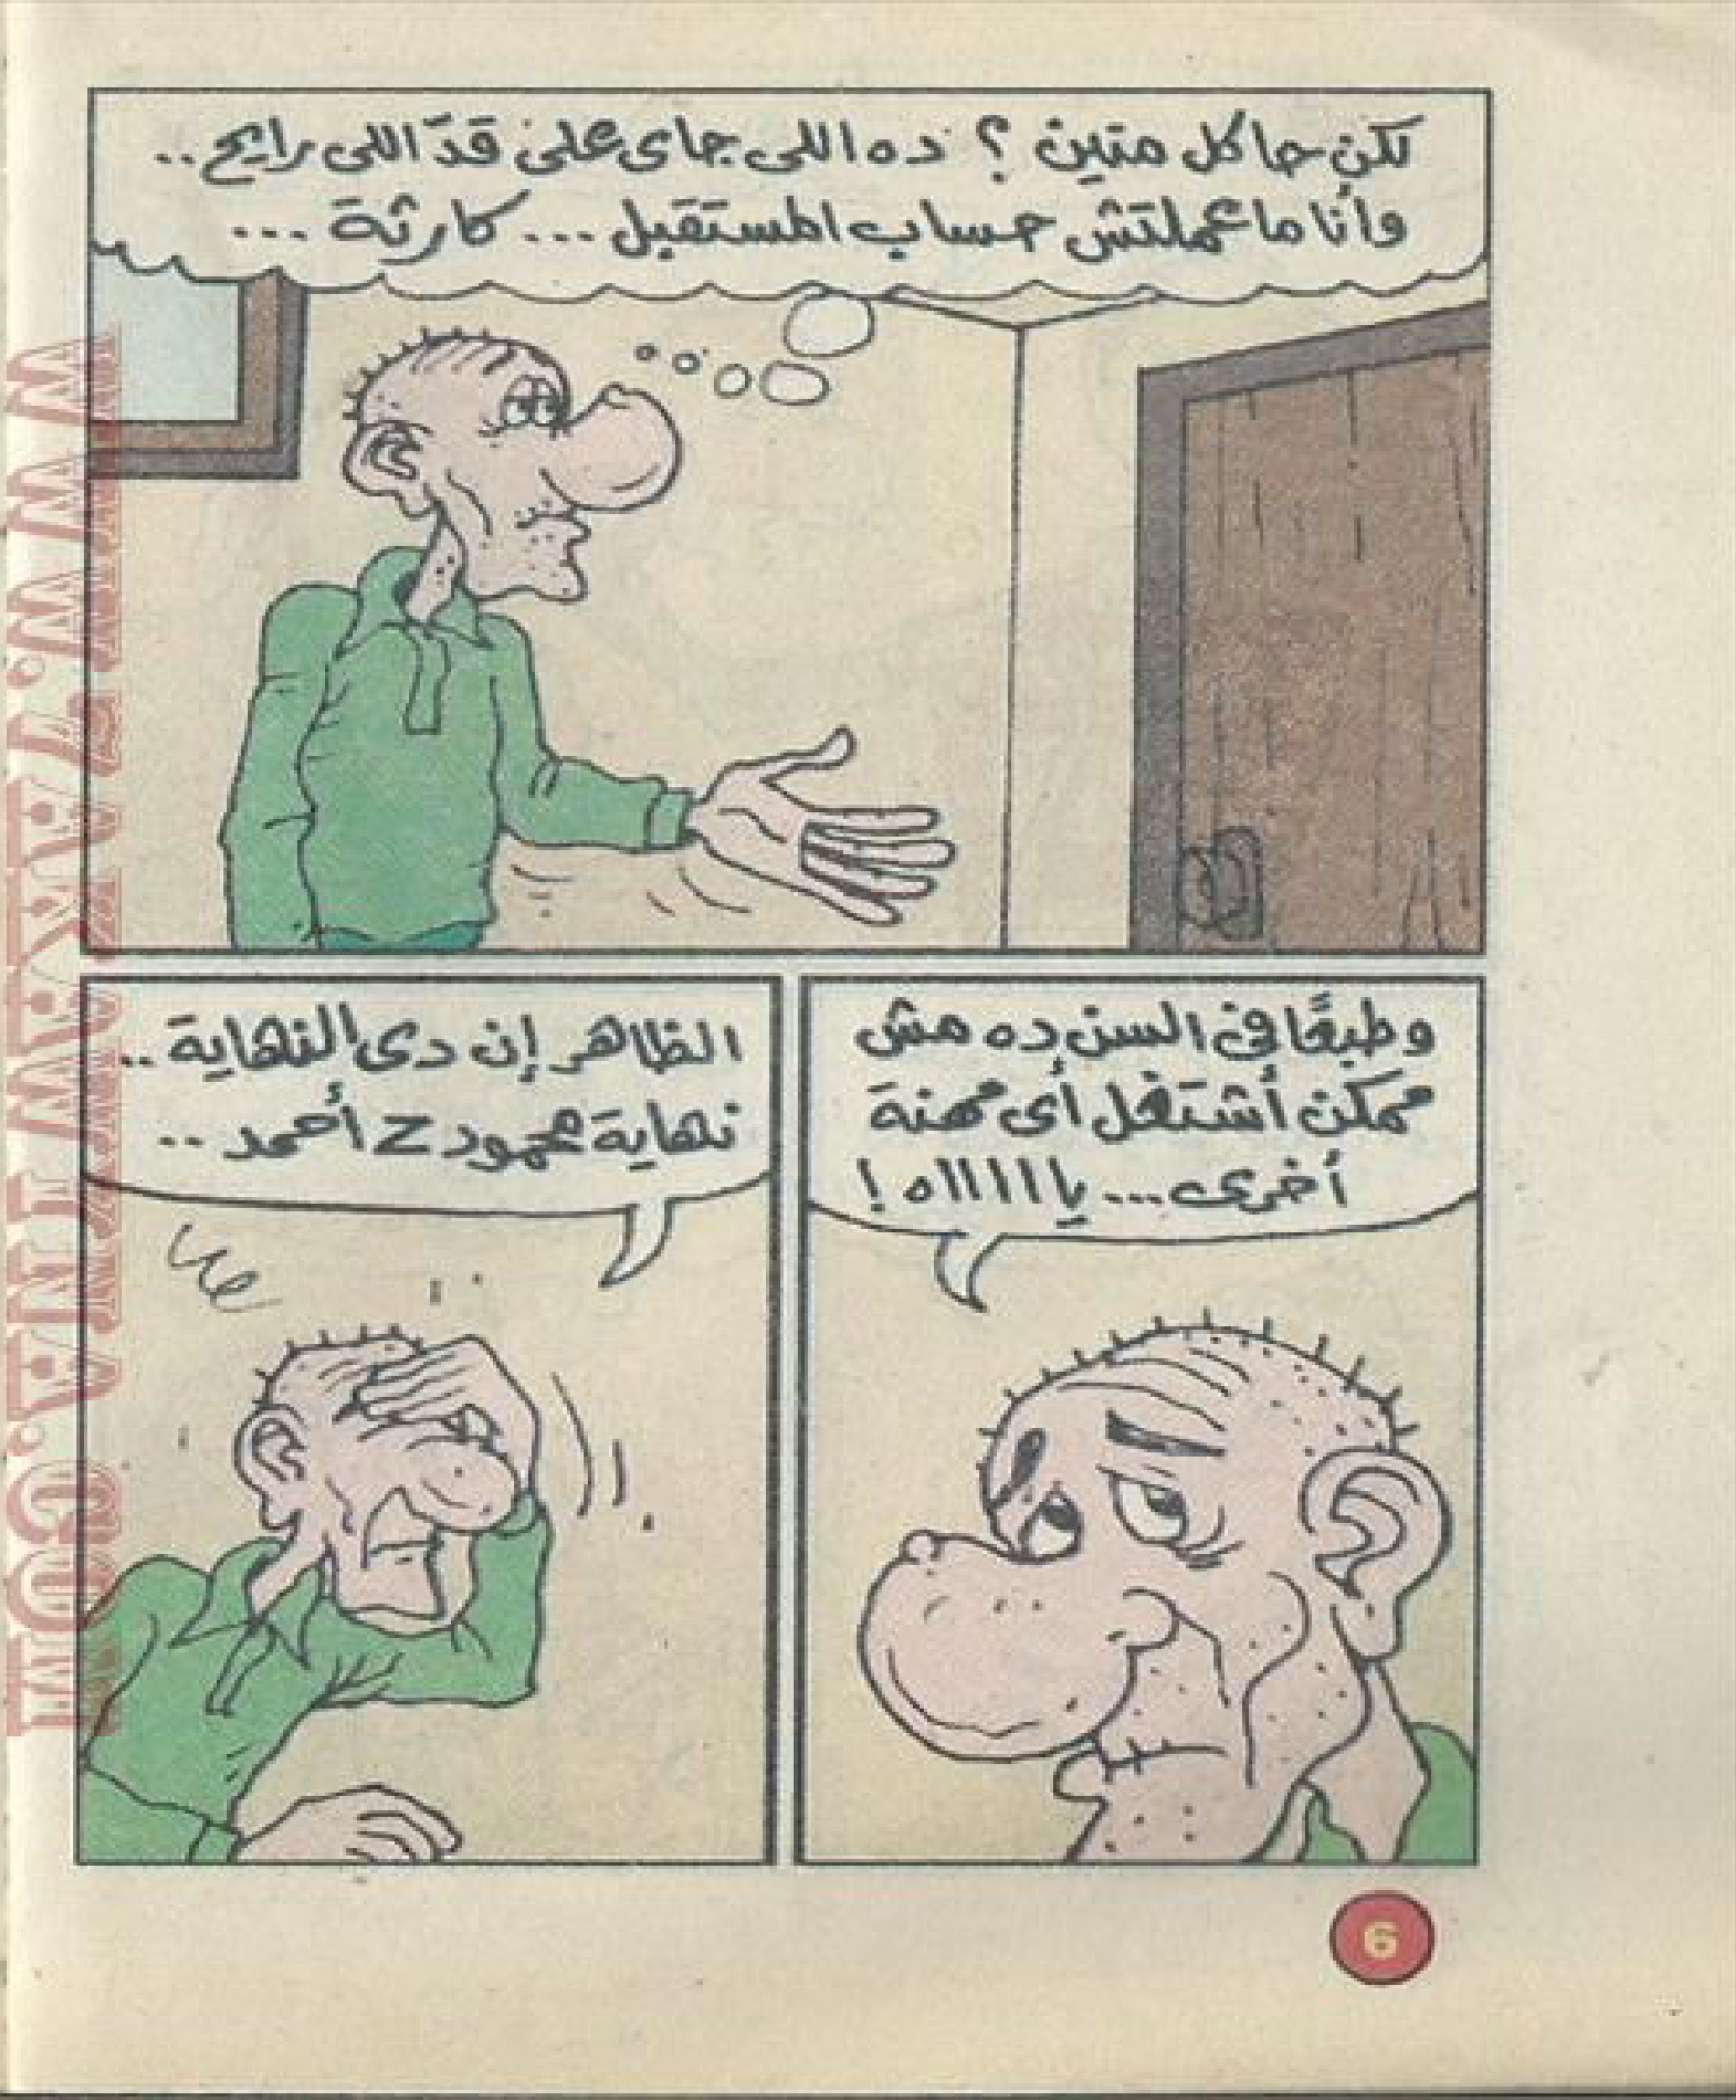 لكن حاكل متين ؟ ده اللى جاى على قدّ اللى رايح ..
وأنا ماعملتش حساب المستقبل ... كارثة ...
وطبعًا فى السن ده مش
ممكن أشتغل أى مهنة
أخرى ... يااااااه !
الظاهر إن دى النهاية ..
نهاية محمود z أحمد ..
6